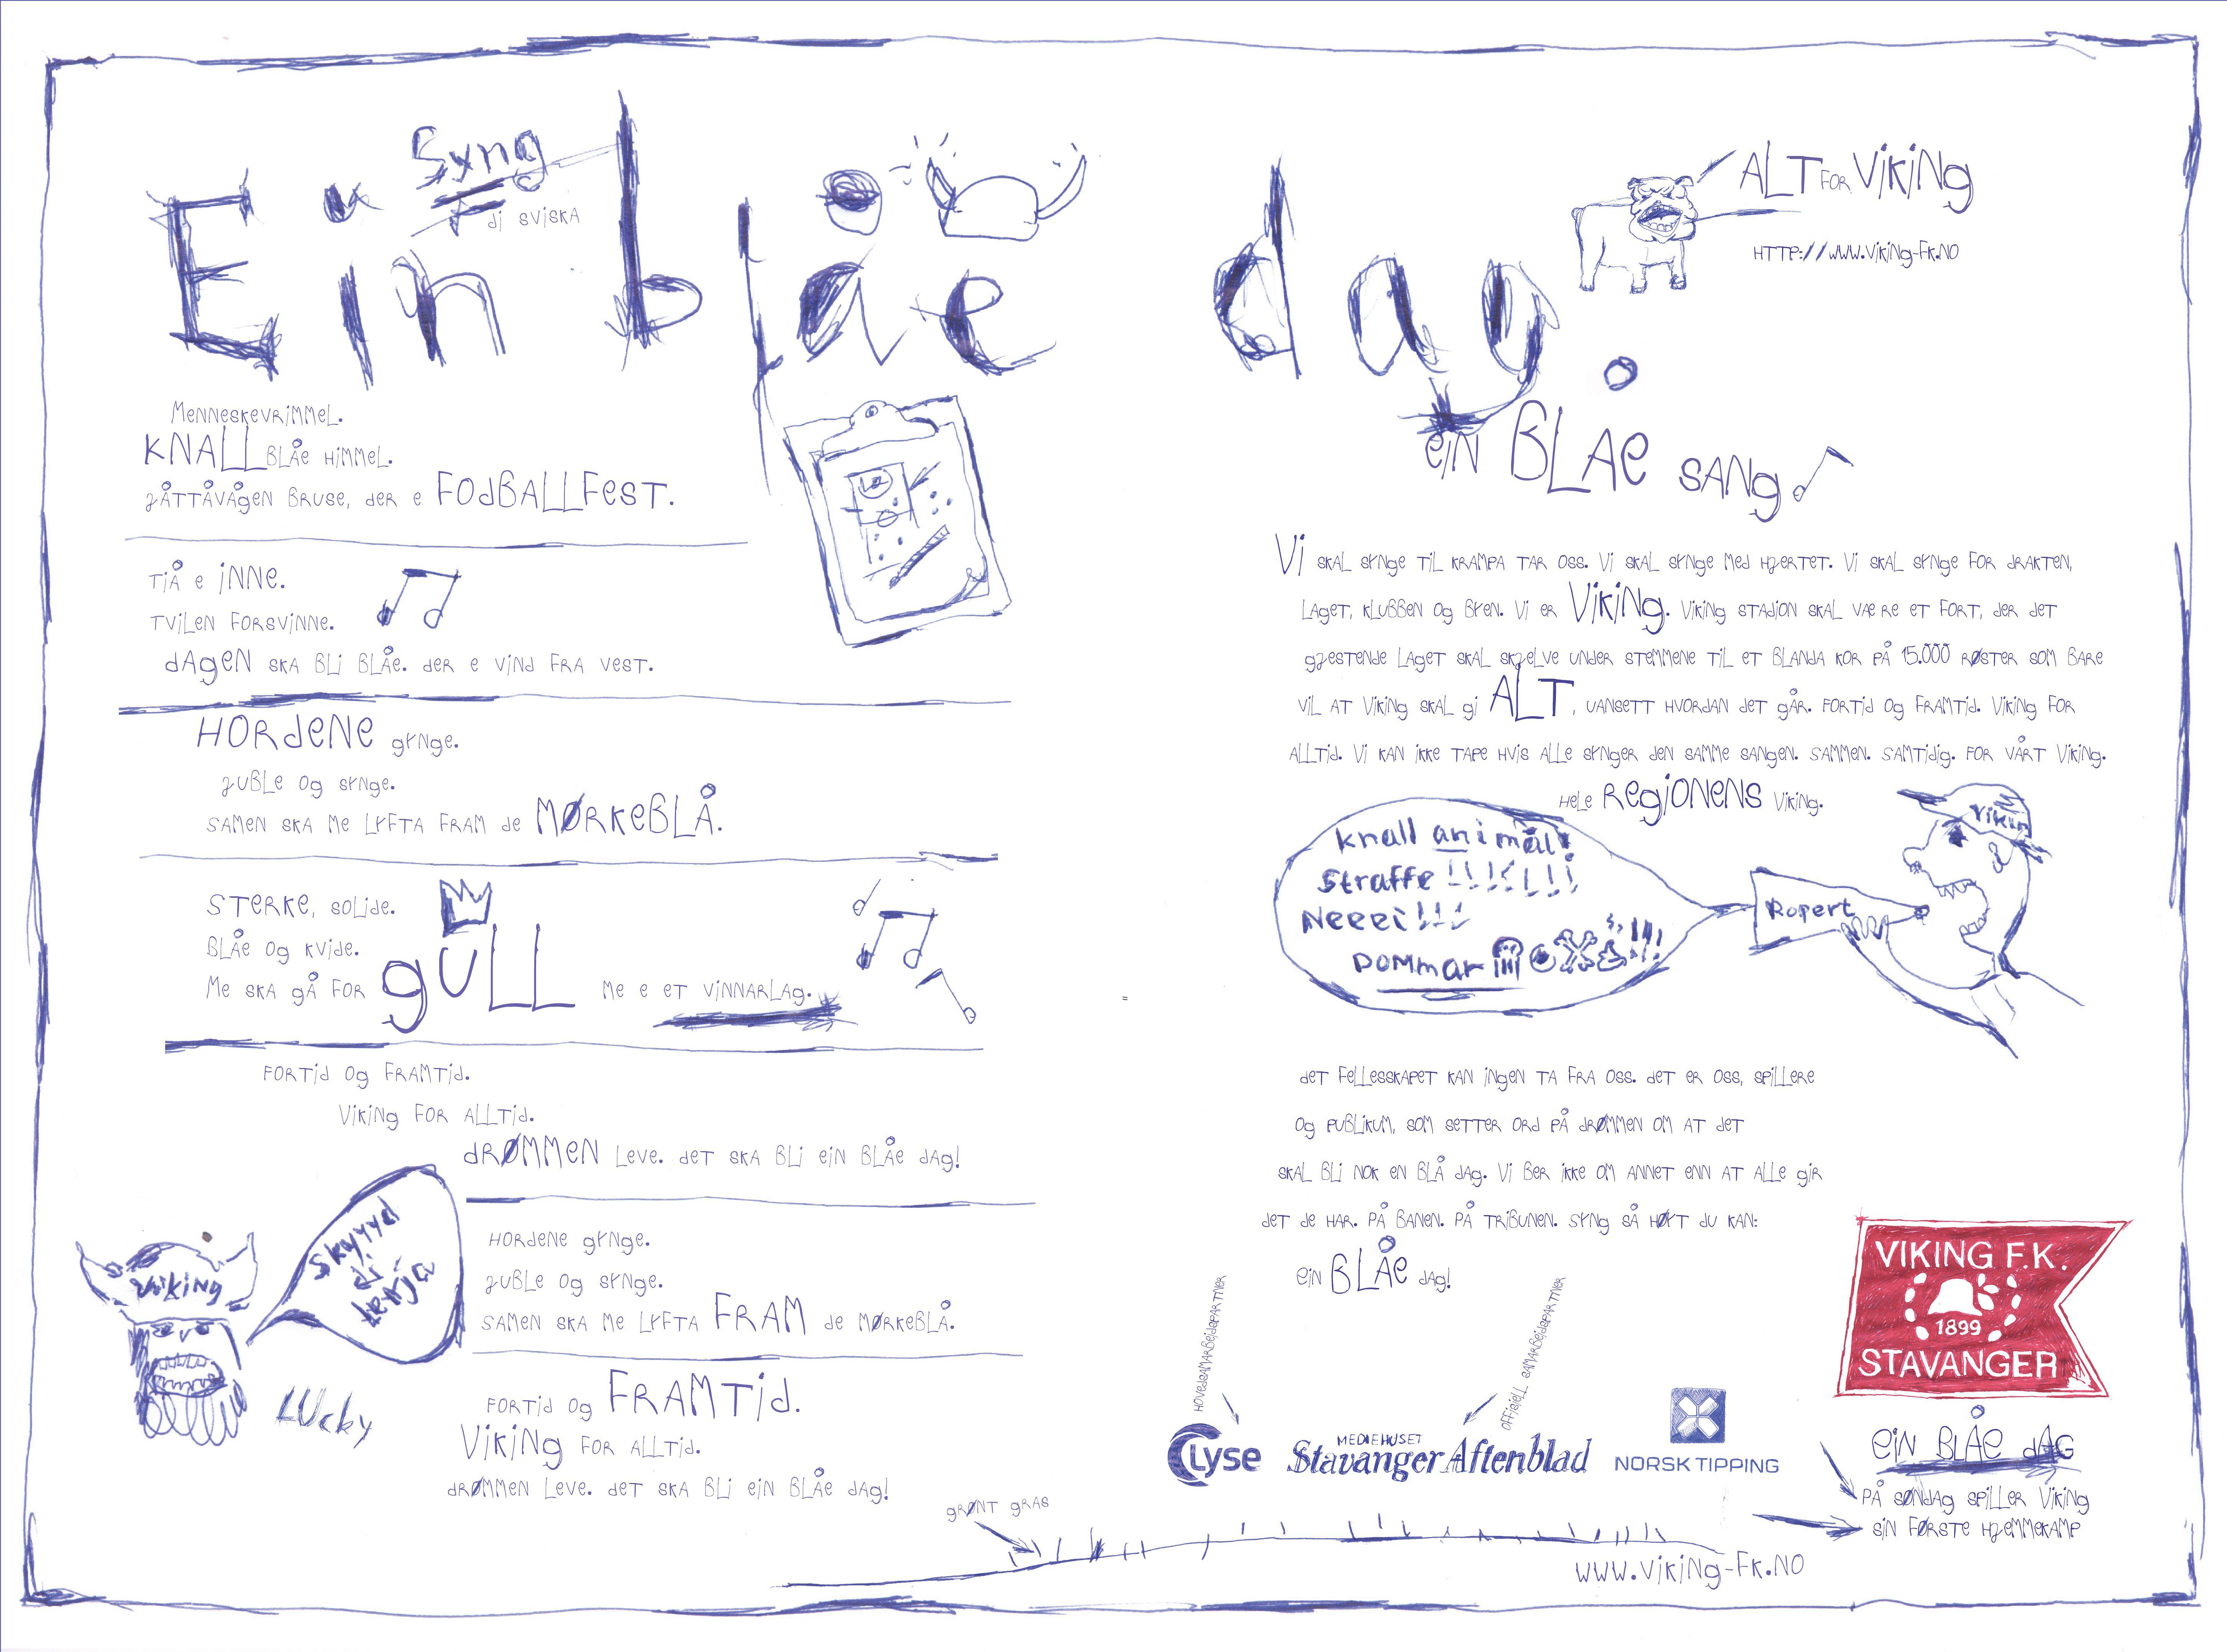 Syng
di sviska
Ein blåe dag.
Menneskevrimmel.
KNALLblåe himmel.
Jåttåvågen bruse, der e FODBALLFEST.
Tiå e inne.
Tvilen forsvinne.
Dagen ska bli blåe. Der e vind fra vest.
HORDENE gynge.
Juble og synge.
Samen ska me lyfta fram de MØRKEBLÅ.
Sterke, solide.
Blåe og kvide.
Me ska gå for GULL me e et vinnarlag.
Fortid og framtid.
Viking for alltid.
DRØMMEN leve. Det ska bli ein blåe dag!
Hordene gynge.
Juble og synge.
Samen ska me lyfta FRAM de mørkeblå.
Fortid og FRAMTID.
Viking for alltid.
Drømmen leve. Det ska bli ein blåe dag!
Viking
Skyyyd
di
Lucky
grønt gras
ALT for Viking
http://www.viking-fk.no
ein BLÅe sang
Vi skal synge til krampa tar oss. Vi skal synge med hjertet. Vi skal synge for drakten,
laget, klubben og byen. Vi er Viking. Viking stadion skal være et fort, der det
gjestende laget skal skjelve under stemmene til et blanda kor på 15.000 røster som bare
vil at Viking skal gi ALT, uansett hvordan det går. Fortid og framtid. Viking for
alltid. Vi kan ikke tape hvis alle synger den samme sangen. Sammen. Samtidig. For vårt Viking.
Hele REGIONENS Viking.
Knall an i mål!
Straffe !!!!!!!
Neeei!!!
Dommar
Ropert
Viking
Det fellesskapet kan ingen ta fra oss. Det er oss, spillere
og publikum, som setter ord på drømmen om at det
skal bli nok en blå dag. Vi ber ikke om annet enn at alle gir
det de har. På banen. På tribunen. Syng så høyt du kan:
ein BLÅe dag!
Hovedsamarbeidspartner
Offisiell samarbeidspartner
Lyse
MEDIEHUSET
Stavanger Aftenblad
NORSK TIPPING
VIKING F.K.
1899
STAVANGER
ein blåe dag
På søndag spiller Viking
sin første hjemmekamp
www.viking-fk.no